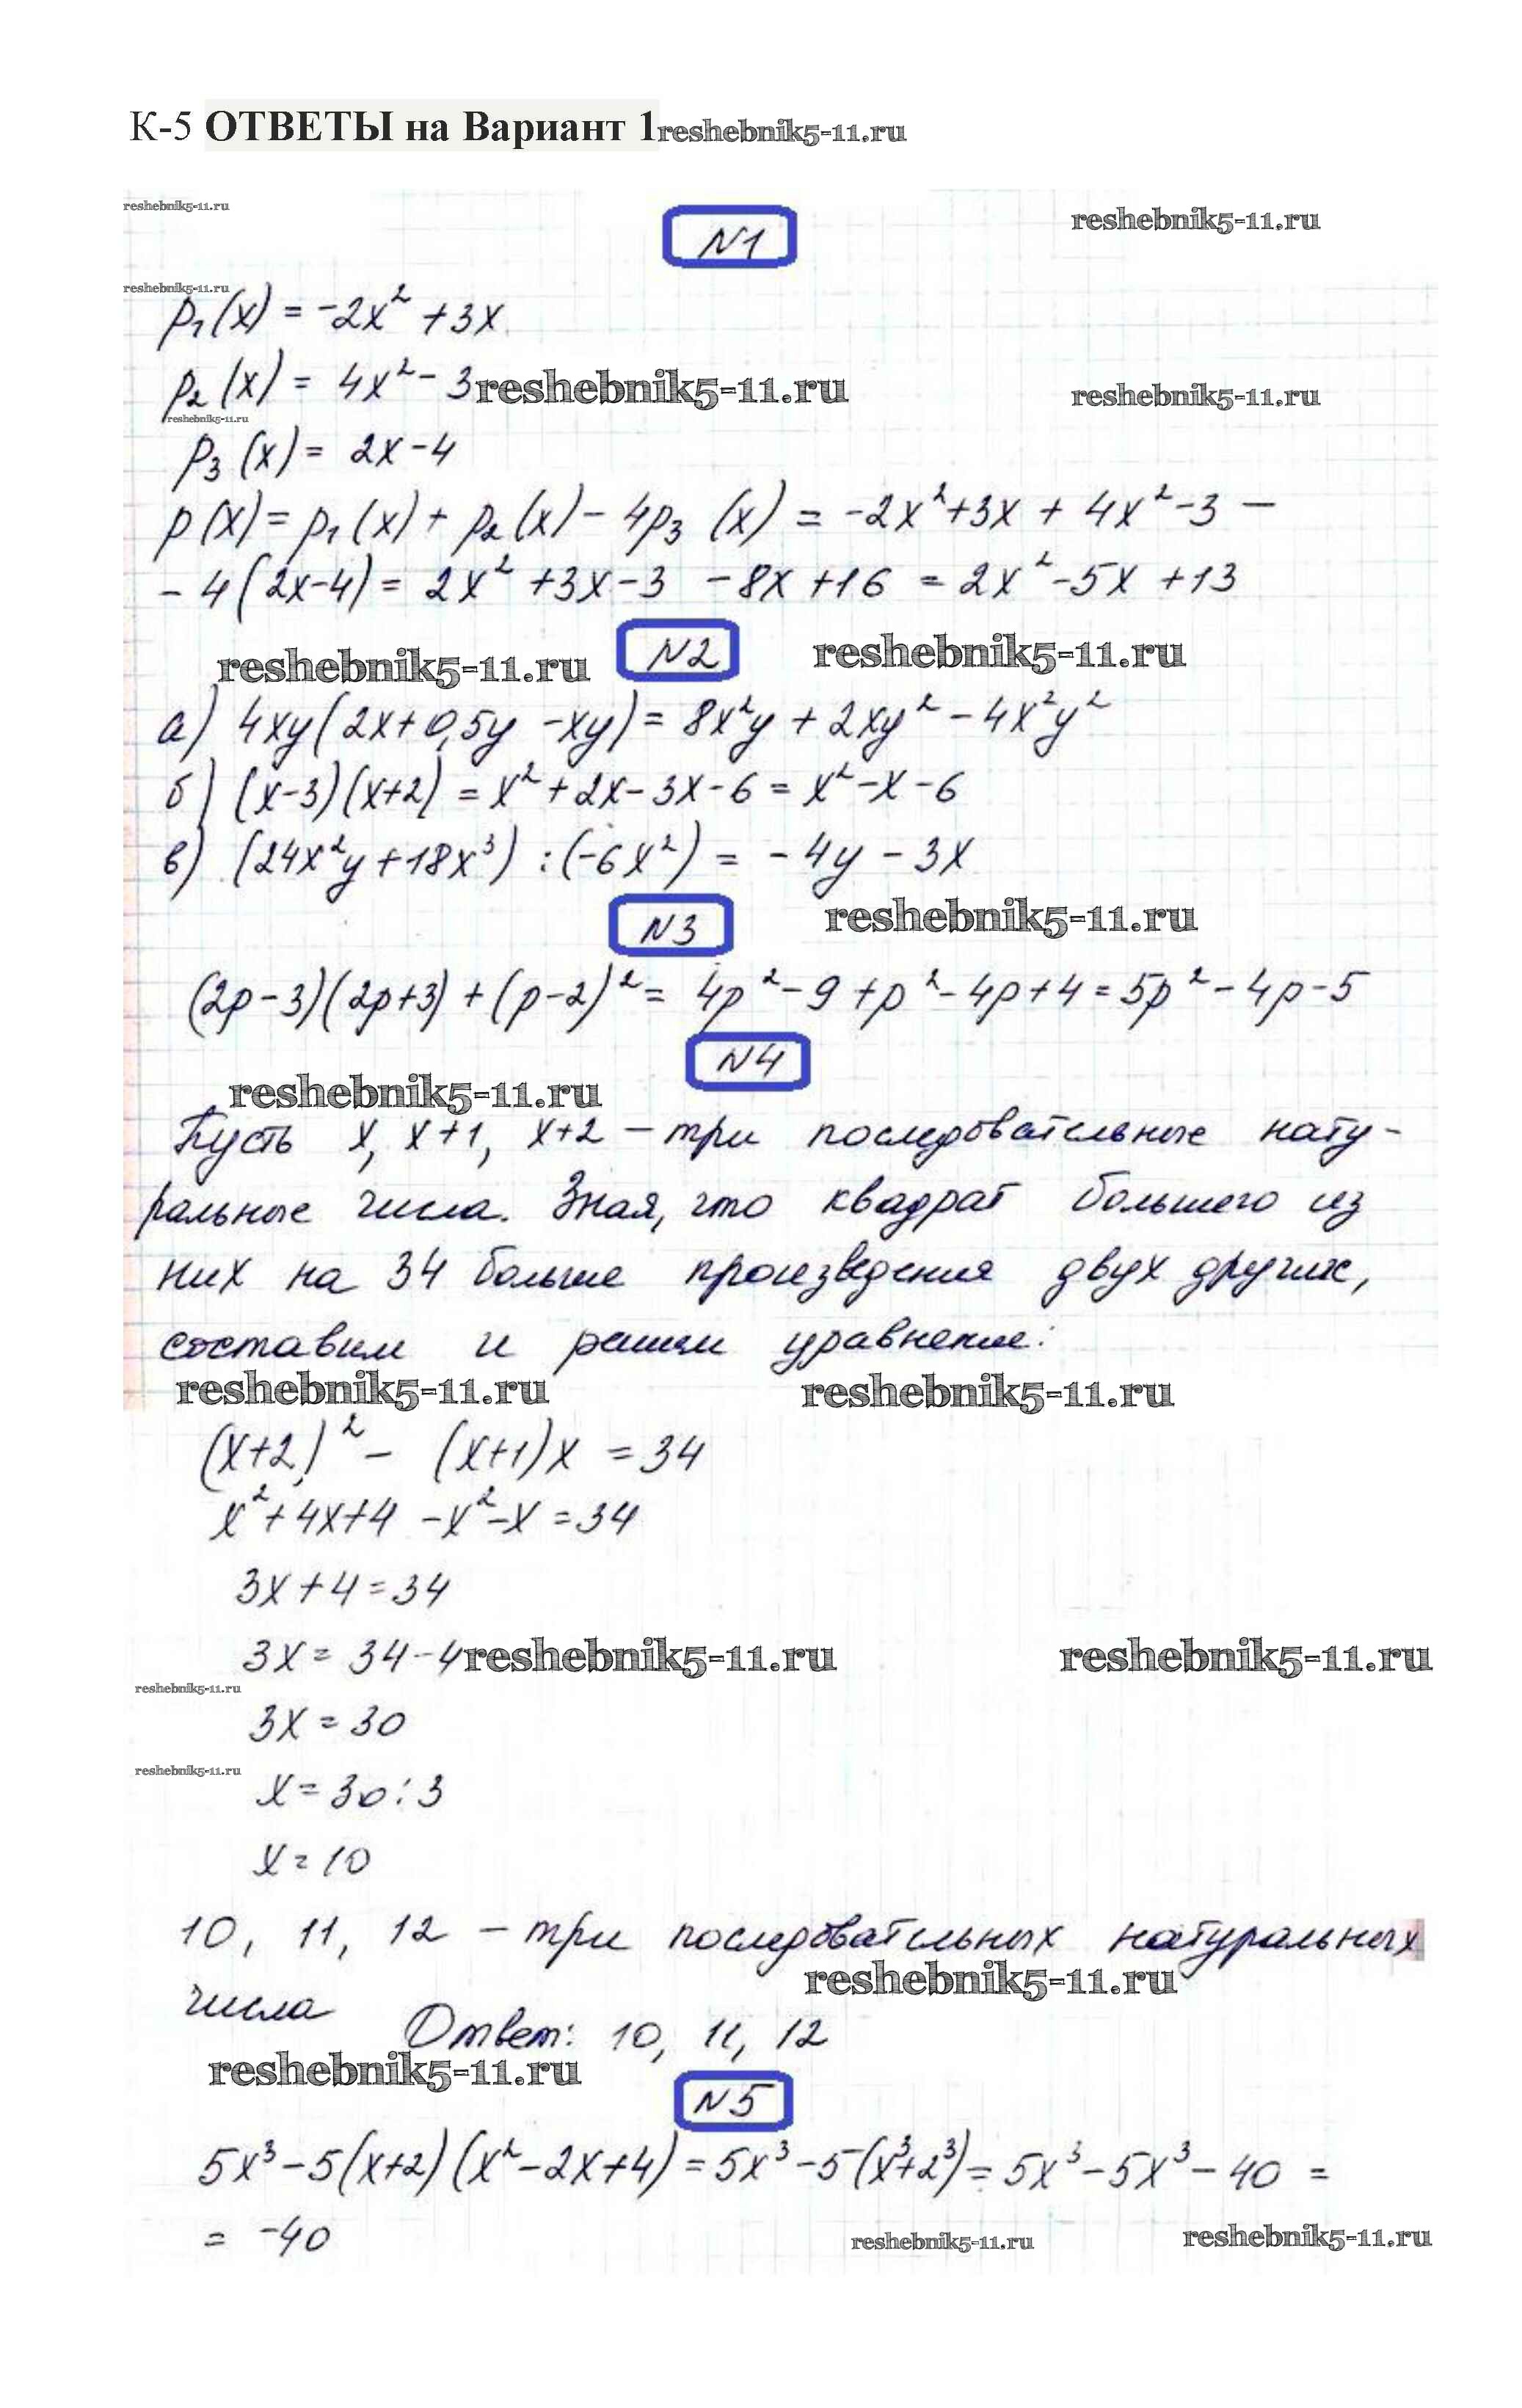 К-5 ОТВЕТЫ на Вариант 1reshebnik5-11.ru
reshebnik5-11.ru
N1
reshebnik5-11.ru
reshebnik5-11.ru
p₁(x) = -2x² + 3x
p₂(x) = 4x² - 3reshebnik5-11.ru
reshebnik5-11.ru
reshebnik5-11.ru
p₃(x) = 2x - 4
p(x) = p₁(x) + p₂(x) - 4p₃(x) = -2x² + 3x + 4x² - 3 -
- 4(2x-4) = 2x² + 3x - 3 - 8x + 16 = 2x² - 5x + 13
reshebnik5-11.ru
N2
reshebnik5-11.ru
а) 4xy(2x + 0,5y - xy) = 8x²y + 2xy² - 4x²y²
б) (x-3)(x+2) = x² + 2x - 3x - 6 = x² - x - 6
в) (24x²y + 18x³) : (-6x²) = -4y - 3x
N3
reshebnik5-11.ru
(2p-3)(2p+3) + (p-2)² = 4p² - 9 + p² - 4p + 4 = 5p² - 4p - 5
N4
reshebnik5-11.ru
Пусть x, x+1, x+2 – три последовательные нату-
ральные числа. Зная, что квадрат большего из
них на 34 больше произведения двух других,
составим и решим уравнение:
reshebnik5-11.ru
reshebnik5-11.ru
(x+2)² - (x+1)x = 34
x² + 4x + 4 - x² - x = 34
3x + 4 = 34
3x = 34 - 4reshebnik5-11.ru
reshebnik5-11.ru
reshebnik5-11.ru
3x = 30
reshebnik5-11.ru
x = 30 : 3
x = 10
10, 11, 12 – три последовательных натуральных
reshebnik5-11.ru
числа Ответ: 10, 11, 12
reshebnik5-11.ru
N5
5x³ - 5(x+2)(x² - 2x + 4) = 5x³ - 5(x³+2³) = 5x³ - 5x³ - 40 =
= -40
reshebnik5-11.ru
reshebnik5-11.ru